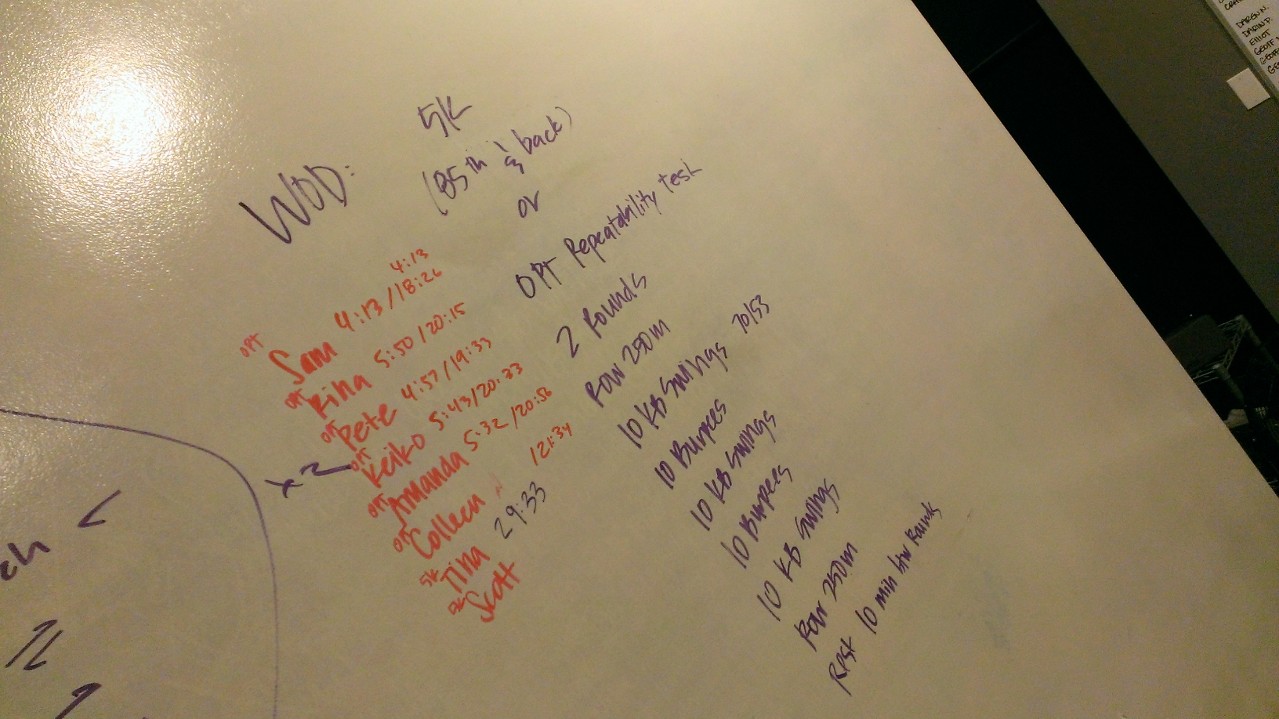 WOD:
5K
(85th & back)
or
OPT Repeatability test
2 Rounds
Row 250m
10 KB Swings 70/53
10 Burpees
10 KB Swings
10 Burpees
10 KB Swings
Row 250m
Rest 10 min btw Rounds
4:13
OPT Sam 4:13/18:26
OPT Rina 5:50/20:15
OPT Pete 4:57/19:33
OPT Keiko 5:43/20:33
OPT Amanda 5:32/20:58
OPT Colleen /21:34
5K Tina 29:33
5K Scott
x 2
ch <
DARGN N.
DARIN P.
ELLIOT